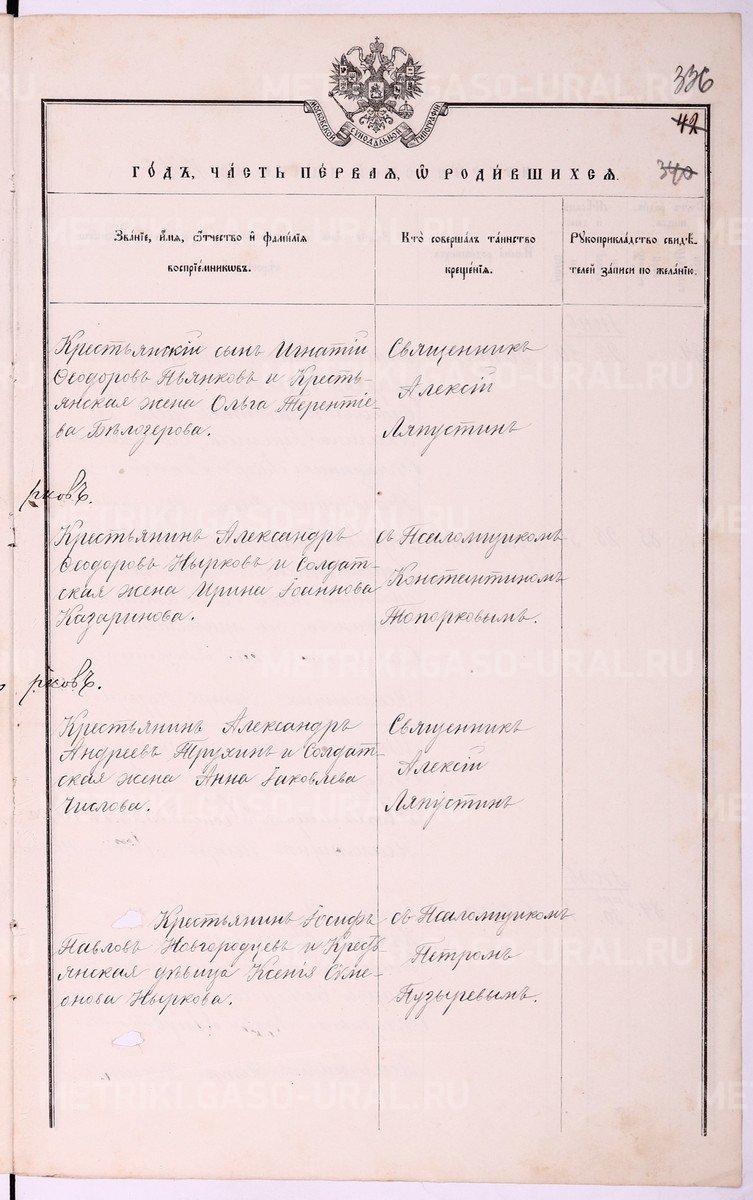 336
42
340
МОСКОВСКОЙ СѴНОДАЛЬНОЙ ТИПОГРАФІИ
ГОДЪ, ЧАСТЬ ПЕРВАЯ, Ѿ РОДИВШИХСЯ.
Званіе, имя, отчество и фамилія
воспріемниковъ.
Кто совершалъ таинство
крещенія.
Рукоприкладство свидѣ-
телей записи по желанію.
Крестьянскій сынъ Игнатій
Ѳеодоровъ Пьянковъ и Кресть-
янская жена Ольга Терентіе-
ва Бѣлозерова.
Священникъ
Алексій
Ляпустинъ
рковъ.
Крестьянинъ Александръ
Ѳеодоровъ Нырковъ и Солдат-
ская жена Ирина Іоаннова
Казаринова.
съ Псаломщикомъ
Константиномъ
Топорковымъ.
рковъ.
Крестьянинъ Александръ
Андреевъ Трухинъ и Солдат-
ская жена Анна Іаковлева
Числова.
Священникъ
Алексій
Ляпустинъ
Крестьянинъ Іосифъ
Павловъ Новгородцевъ и Крестъ
янская дѣвица Ксенія Сѵме-
онова Ныркова.
съ Псаломщикомъ
Петромъ
Пузыревымъ.
METRIKI.GASO-URAL.RU